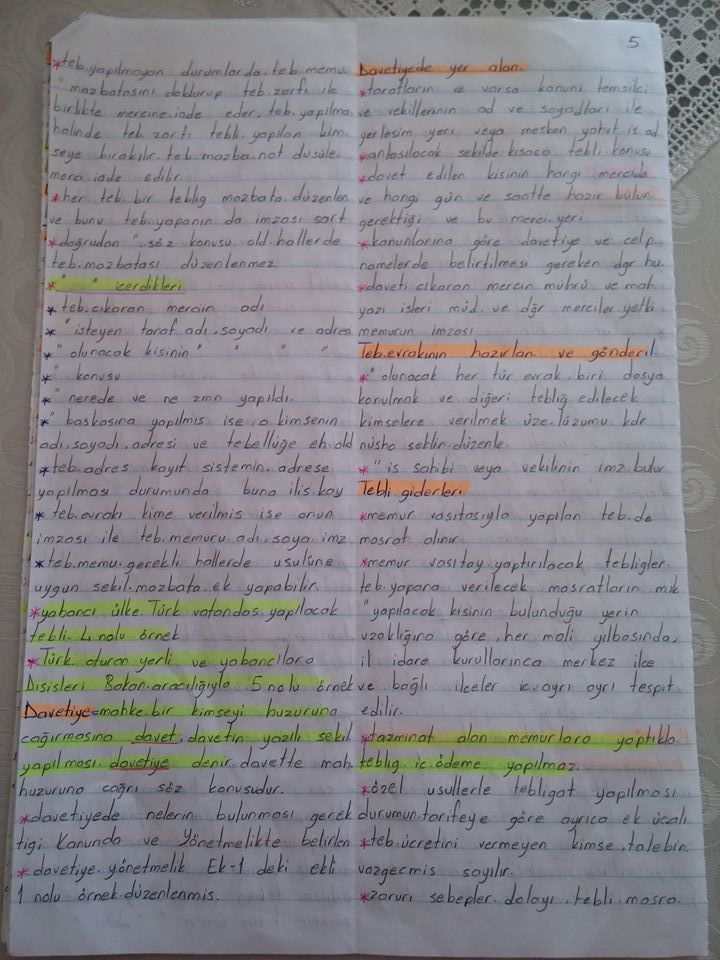 5
*teb.yapılmayan durumlarda.teb.memu
" mazbatasını doldurup teb.zarfı ile
birlikte merciine.iade eder.teb.yapılma
halinde teb.zarfı tebli.yapılan kim
seye bırakılır.teb.mazba.not düsüle
merci.iade edilir
*her teb.bir teblig mazbata.düzenlen
ve bunu teb.yapanın da imzası sart
*doğrudan ".söz konusu old.hallerde
teb.mazbatası düzenlenmez
*" " icerdikleri
*teb.cıkaran merciin adı
*"isteyen taraf adı.soyadı ve adres
*"olunacak kisinin " " " "
*" konusu
*"nerede ve ne zmn yapıldı.
*" baskasına yapılmıs ise.o kimsenin
adı.soyadı.adresi ve tebellüğe eh.old
*teb.adres kayıt sistemin.adrese
yapılması durumunda buna ilis.kay
*teb.evrakı kime verilmis ise onun
imzası ile teb.memuru.adı.soya.imz
*teb.memu.gerekli hallerde usulüne
uygun sekil.mazbata.ek yapabilir.
*yabancı ülke.Türk vatandas.yapılacak
tebli.4 nolu örnek
*Türk.oturan yerli ve yabancılara
Dısisleri Bakan.aracılığıyla.5 nolu örnek
Davetiye=mahke.bir kimseyi huzuruna
cağırmasına davet.davetin yazılı sekil
yapılması.davetiye denir.davette mah.
huzuruna cağrı söz konusudur.
*davetiyede nelerin bulunması gerek
tigi Kanunda ve Yönetmelikte belirlen
*davetiye.yönetmelik Ek-1 deki ekli
1 nolu örnek.düzenlenmis.
Davetiyede yer alan.
*tarafların ve varsa kanuni temsilci
ve vekillerinin ad ve soyadları ile
yerlesim yeri veya mesken yahut is ad
*anlasılacak sekilde kısaca tebli konusu
*davet edilen kisinin hangi mercide
ve hangi gün ve saatte hazır bulun
gerektiği ve bu merci.yeri
*kanunlarına göre davetiye ve celp.
namelerde belirtilmesi gereken dgr hu.
*daveti cıkaran merciin mührü ve mah.
yazı isleri müd. ve dğr merciler.yetki
memurun imzası
Teb.evrakının hazırlan. ve gönderil
*"olunacak her tür evrak.biri dosya
konulmak ve diğeri tebliğ edilecek
kimselere verilmek üze.lüzumu kdr
nüsha seklin.düzenle
*"is sahibi veya vekilinin imz bulur
Tebli giderleri
*memur vasıtasıyla yapılan teb.de
masraf alınır.
*memur vasıtay.yaptırılacak tebligler.
teb.yapana verilecek masrafların mik
"yapılacak kisinin bulunduğu yerin
uzaklığına göre.her mali yılbasında,
il idare kurullarınca merkez ilce
ve bağlı ilceler ic.ayrı ayrı tespit
edilir.
*tazminat alan memurlara yaptıkla.
teblig ic.ödeme yapılmaz.
*özel usullerle tebligat yapılması
durumun.tarifeye göre ayrıca ek ücali
*teb.ücretini vermeyen kimse.talebin.
vazgecmis sayılır.
*zaruri sebepler.dolayı.tebli.masra.